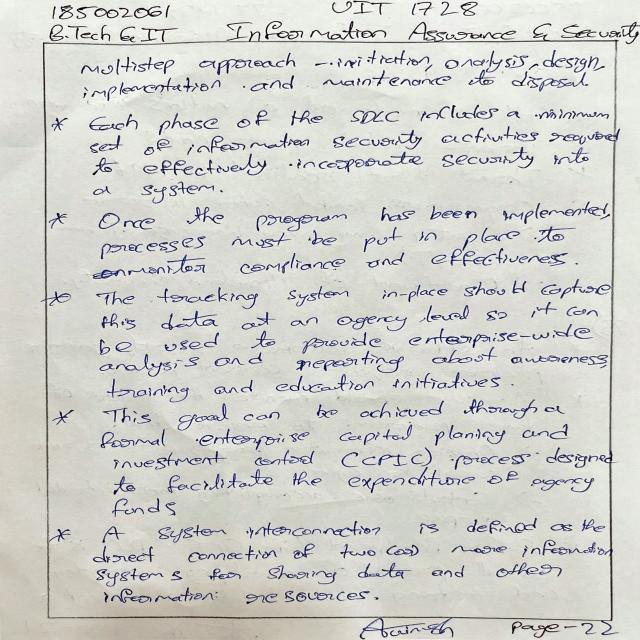 185002061 UIT 1728
B.Tech & IT Information Assurance & Security
multistep approach - initiation, analysis, design,
implementation and maintenance to disposal
* Each phase of the SDLC includes a minimum
set of information security activities required
to effectively incorporate security into
a system.
* Once the program has been implemented,
processes must be put in place to
monitor compliance and effectiveness.
* The tracking system in-place should capture
this data at an agency level so it can
be used to provide enterprise-wide
analysis and reporting about awareness,
training and education initiatives.
* This goal can be achieved through a
formal enterprise capital planing and
investment control (CPIC) process designed
to facilitate the expenditure of agency
funds
* A system interconnection is defined as the
direct connection of two (or) more information
systems for sharing data and other
information resources.
Page-22